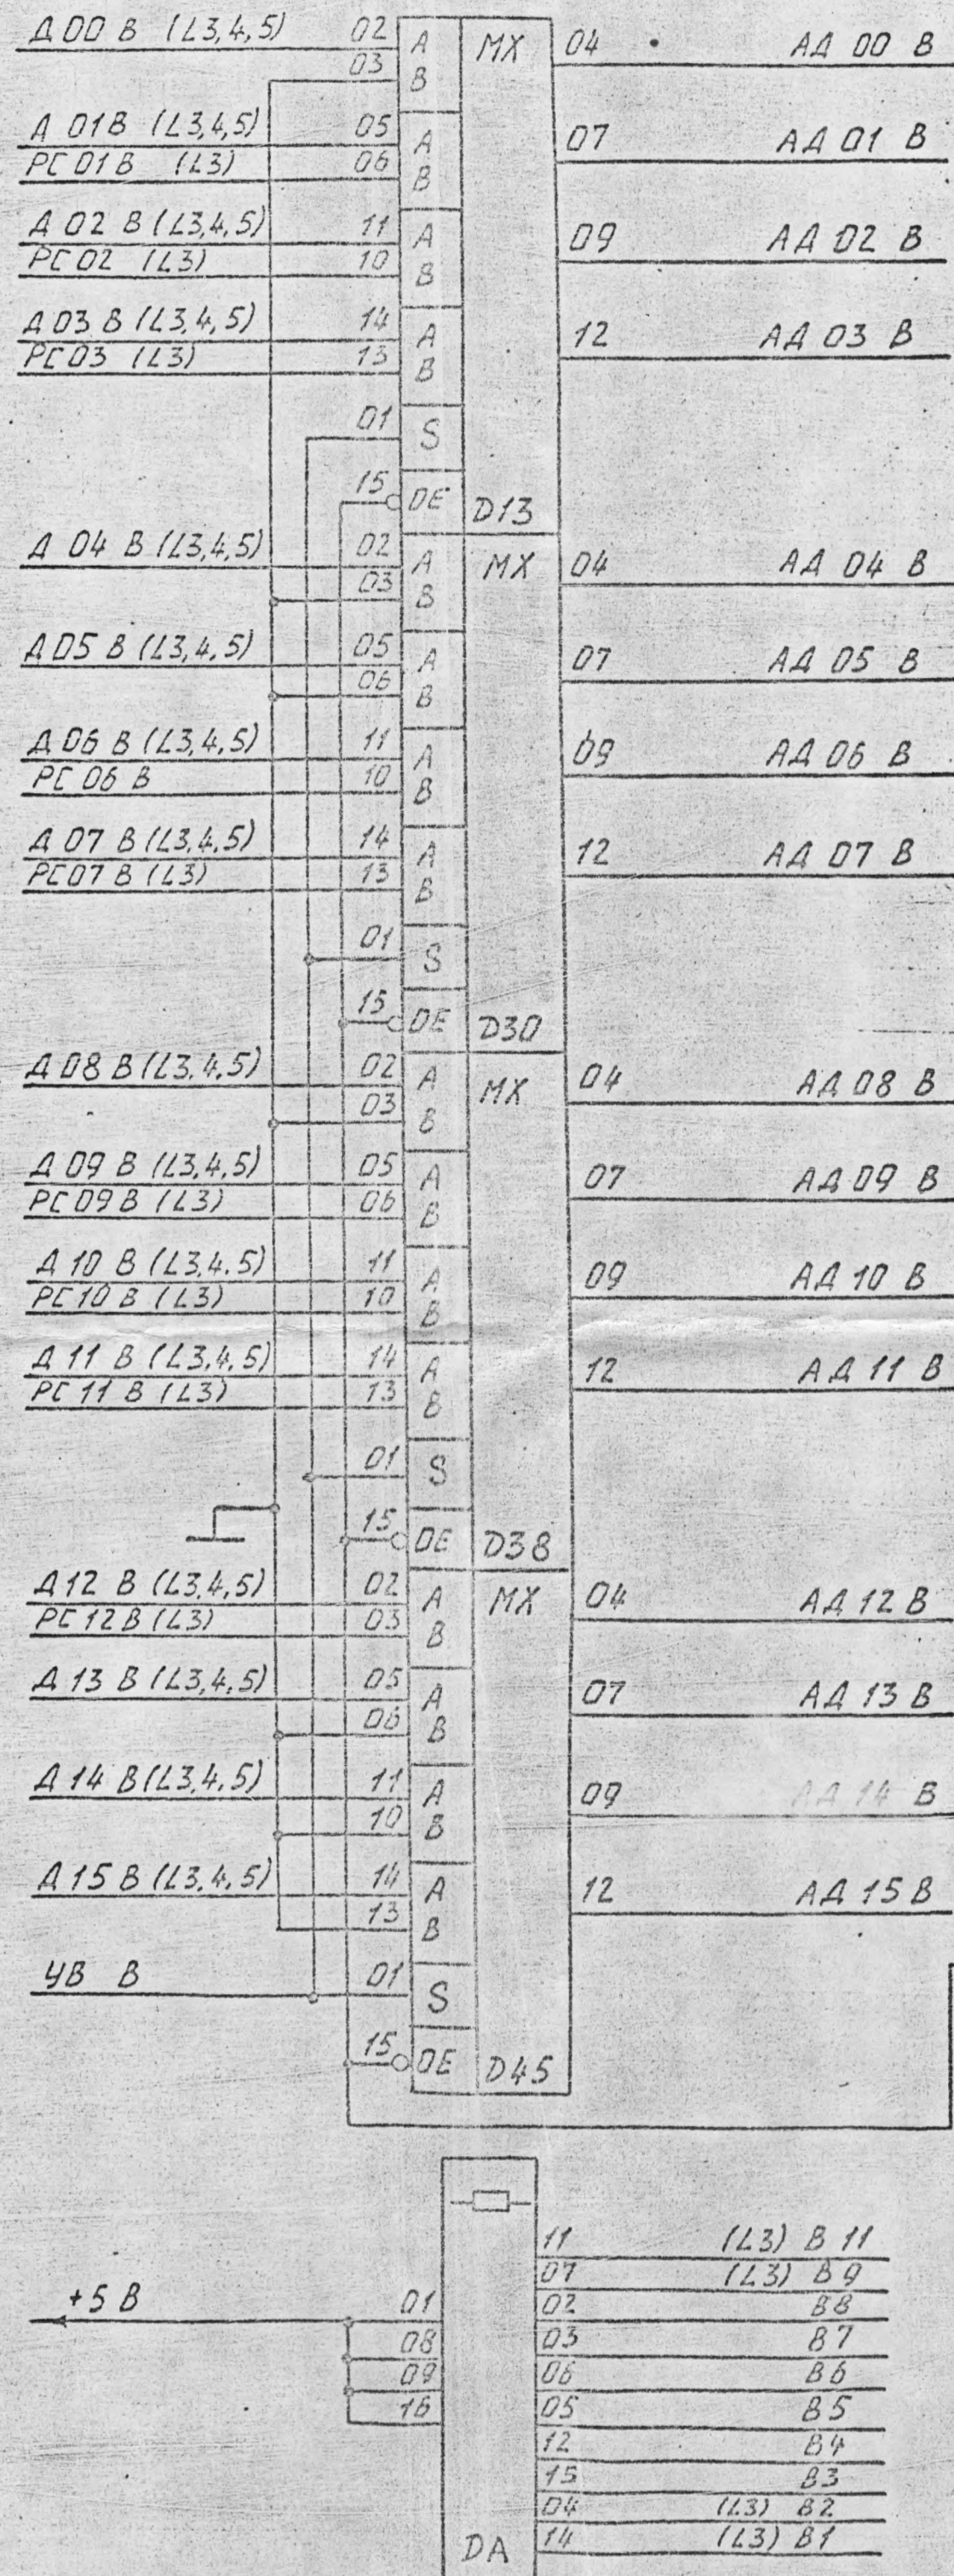 Д 00 В (L3,4,5) 02 A MX 04 АД 00 В
03 B
Д 01 В (L3,4,5) 05 A 07 АД 01 В
РС 01 В (L3) 06 B
Д 02 В (L3,4,5) 11 A 09 АД 02 В
РС 02 (L3) 10 B
Д 03 В (L3,4,5) 14 A 12 АД 03 В
РС 03 (L3) 13 B
01 S
15 OE D13
Д 04 В (L3,4,5) 02 A MX 04 АД 04 В
03 B
Д 05 В (L3,4,5) 05 A 07 АД 05 В
06 B
Д 06 В (L3,4,5) 11 A 09 АД 06 В
РС 06 В 10 B
Д 07 В (L3,4,5) 14 A 12 АД 07 В
РС 07 В (L3) 13 B
01 S
15 OE D30
Д 08 В (L3,4,5) 02 A MX 04 АД 08 В
03 B
Д 09 В (L3,4,5) 05 A 07 АД 09 В
РС 09 В (L3) 06 B
Д 10 В (L3,4,5) 11 A 09 АД 10 В
РС 10 В (L3) 10 B
Д 11 В (L3,4,5) 14 A 12 АД 11 В
РС 11 В (L3) 13 B
01 S
15 OE D38
Д 12 В (L3,4,5) 02 A MX 04 АД 12 В
РС 12 В (L3) 03 B
Д 13 В (L3,4,5) 05 A 07 АД 13 В
06 B
Д 14 В (L3,4,5) 11 A 09 АД 14 В
10 B
Д 15 В (L3,4,5) 14 A 12 АД 15 В
13 B
УВ В 01 S
15 OE D45
11 (L3) В 11
07 (L3) В 9
+5 В 01 02 В8
08 03 В7
09 06 В6
16 05 В5
12 В4
15 В3
04 (L3) В2
DA 14 (L3) В1